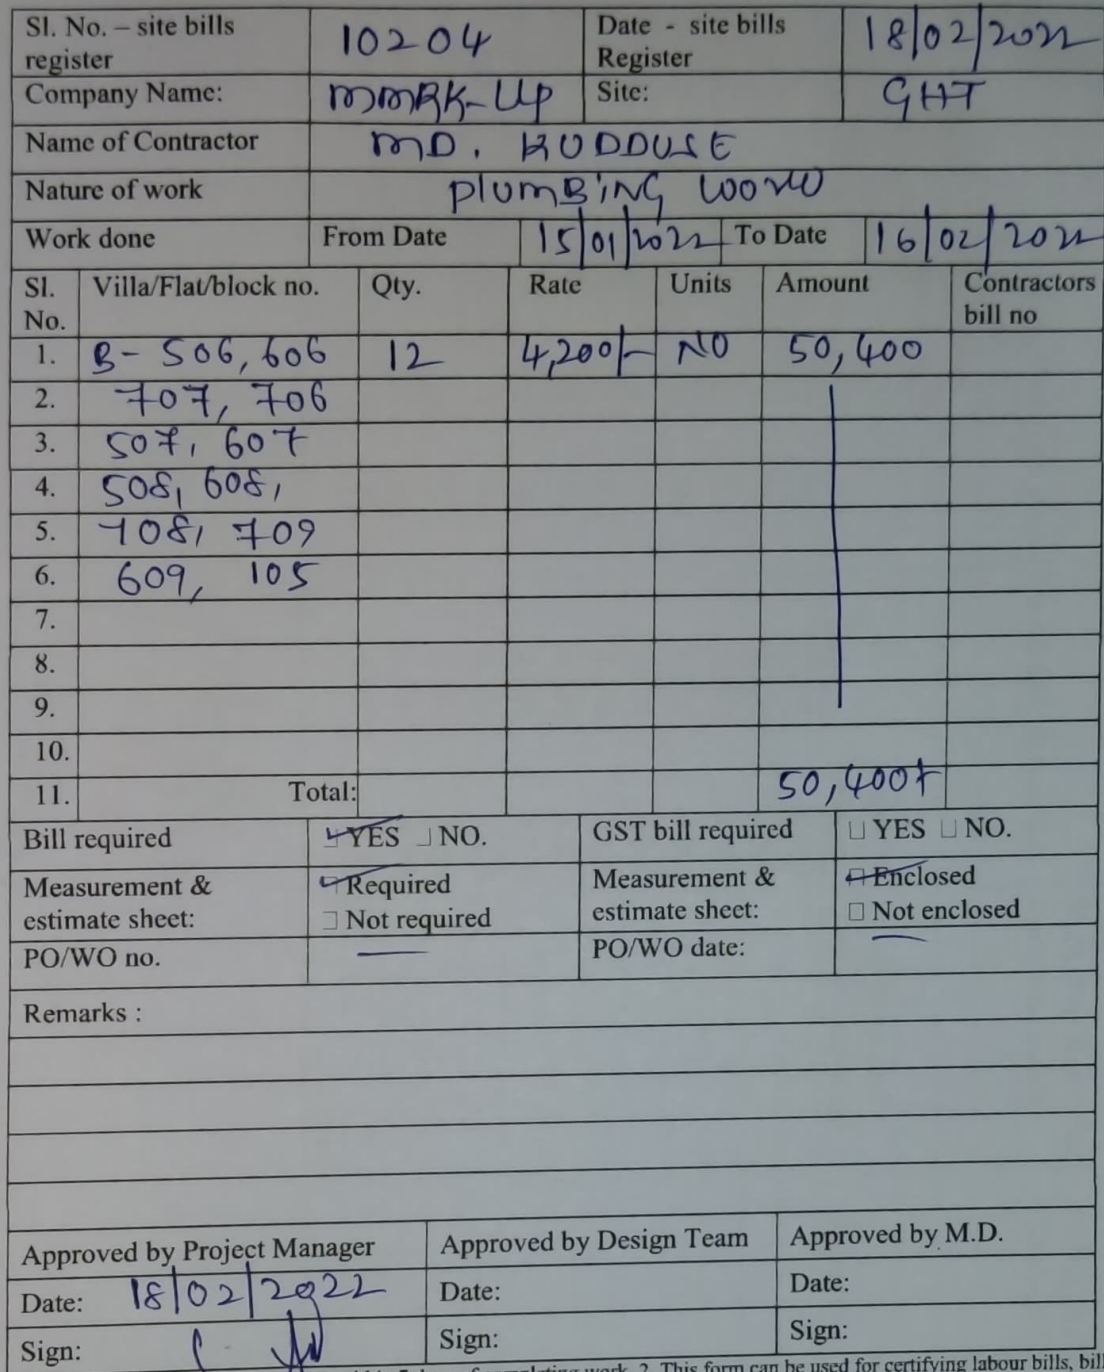 Sl. No. – site bills register 10204 Date - site bills Register 18/02/2022
Company Name: MMRK-Up Site: GHT
Name of Contractor MD. KUDDUSE
Nature of work PlUMBiNG
Work done From Date 15/01/2022 To Date 16/02/2022
Sl. No. Villa/Flat/block no. Qty. Rate Units Amount Contractors bill no
1. B- 506, 606 12 4,200/- NO 50,400
2. 707, 706
3. 507, 607
4. 508, 608,
5. 708, 709
6. 609, 105
7.
8.
9.
10.
11. Total: 50,400/-
Bill required YES NO. GST bill required YES NO.
Measurement & estimate sheet: Required Not required Measurement & estimate sheet: Enclosed Not enclosed
PO/WO no. — PO/WO date: —
Remarks :
Approved by Project Manager Approved by Design Team Approved by M.D.
Date: 18/02/2022 Date: Date:
Sign: Sign: Sign:
work. 2. This form can be used for certifying labour bills, bill